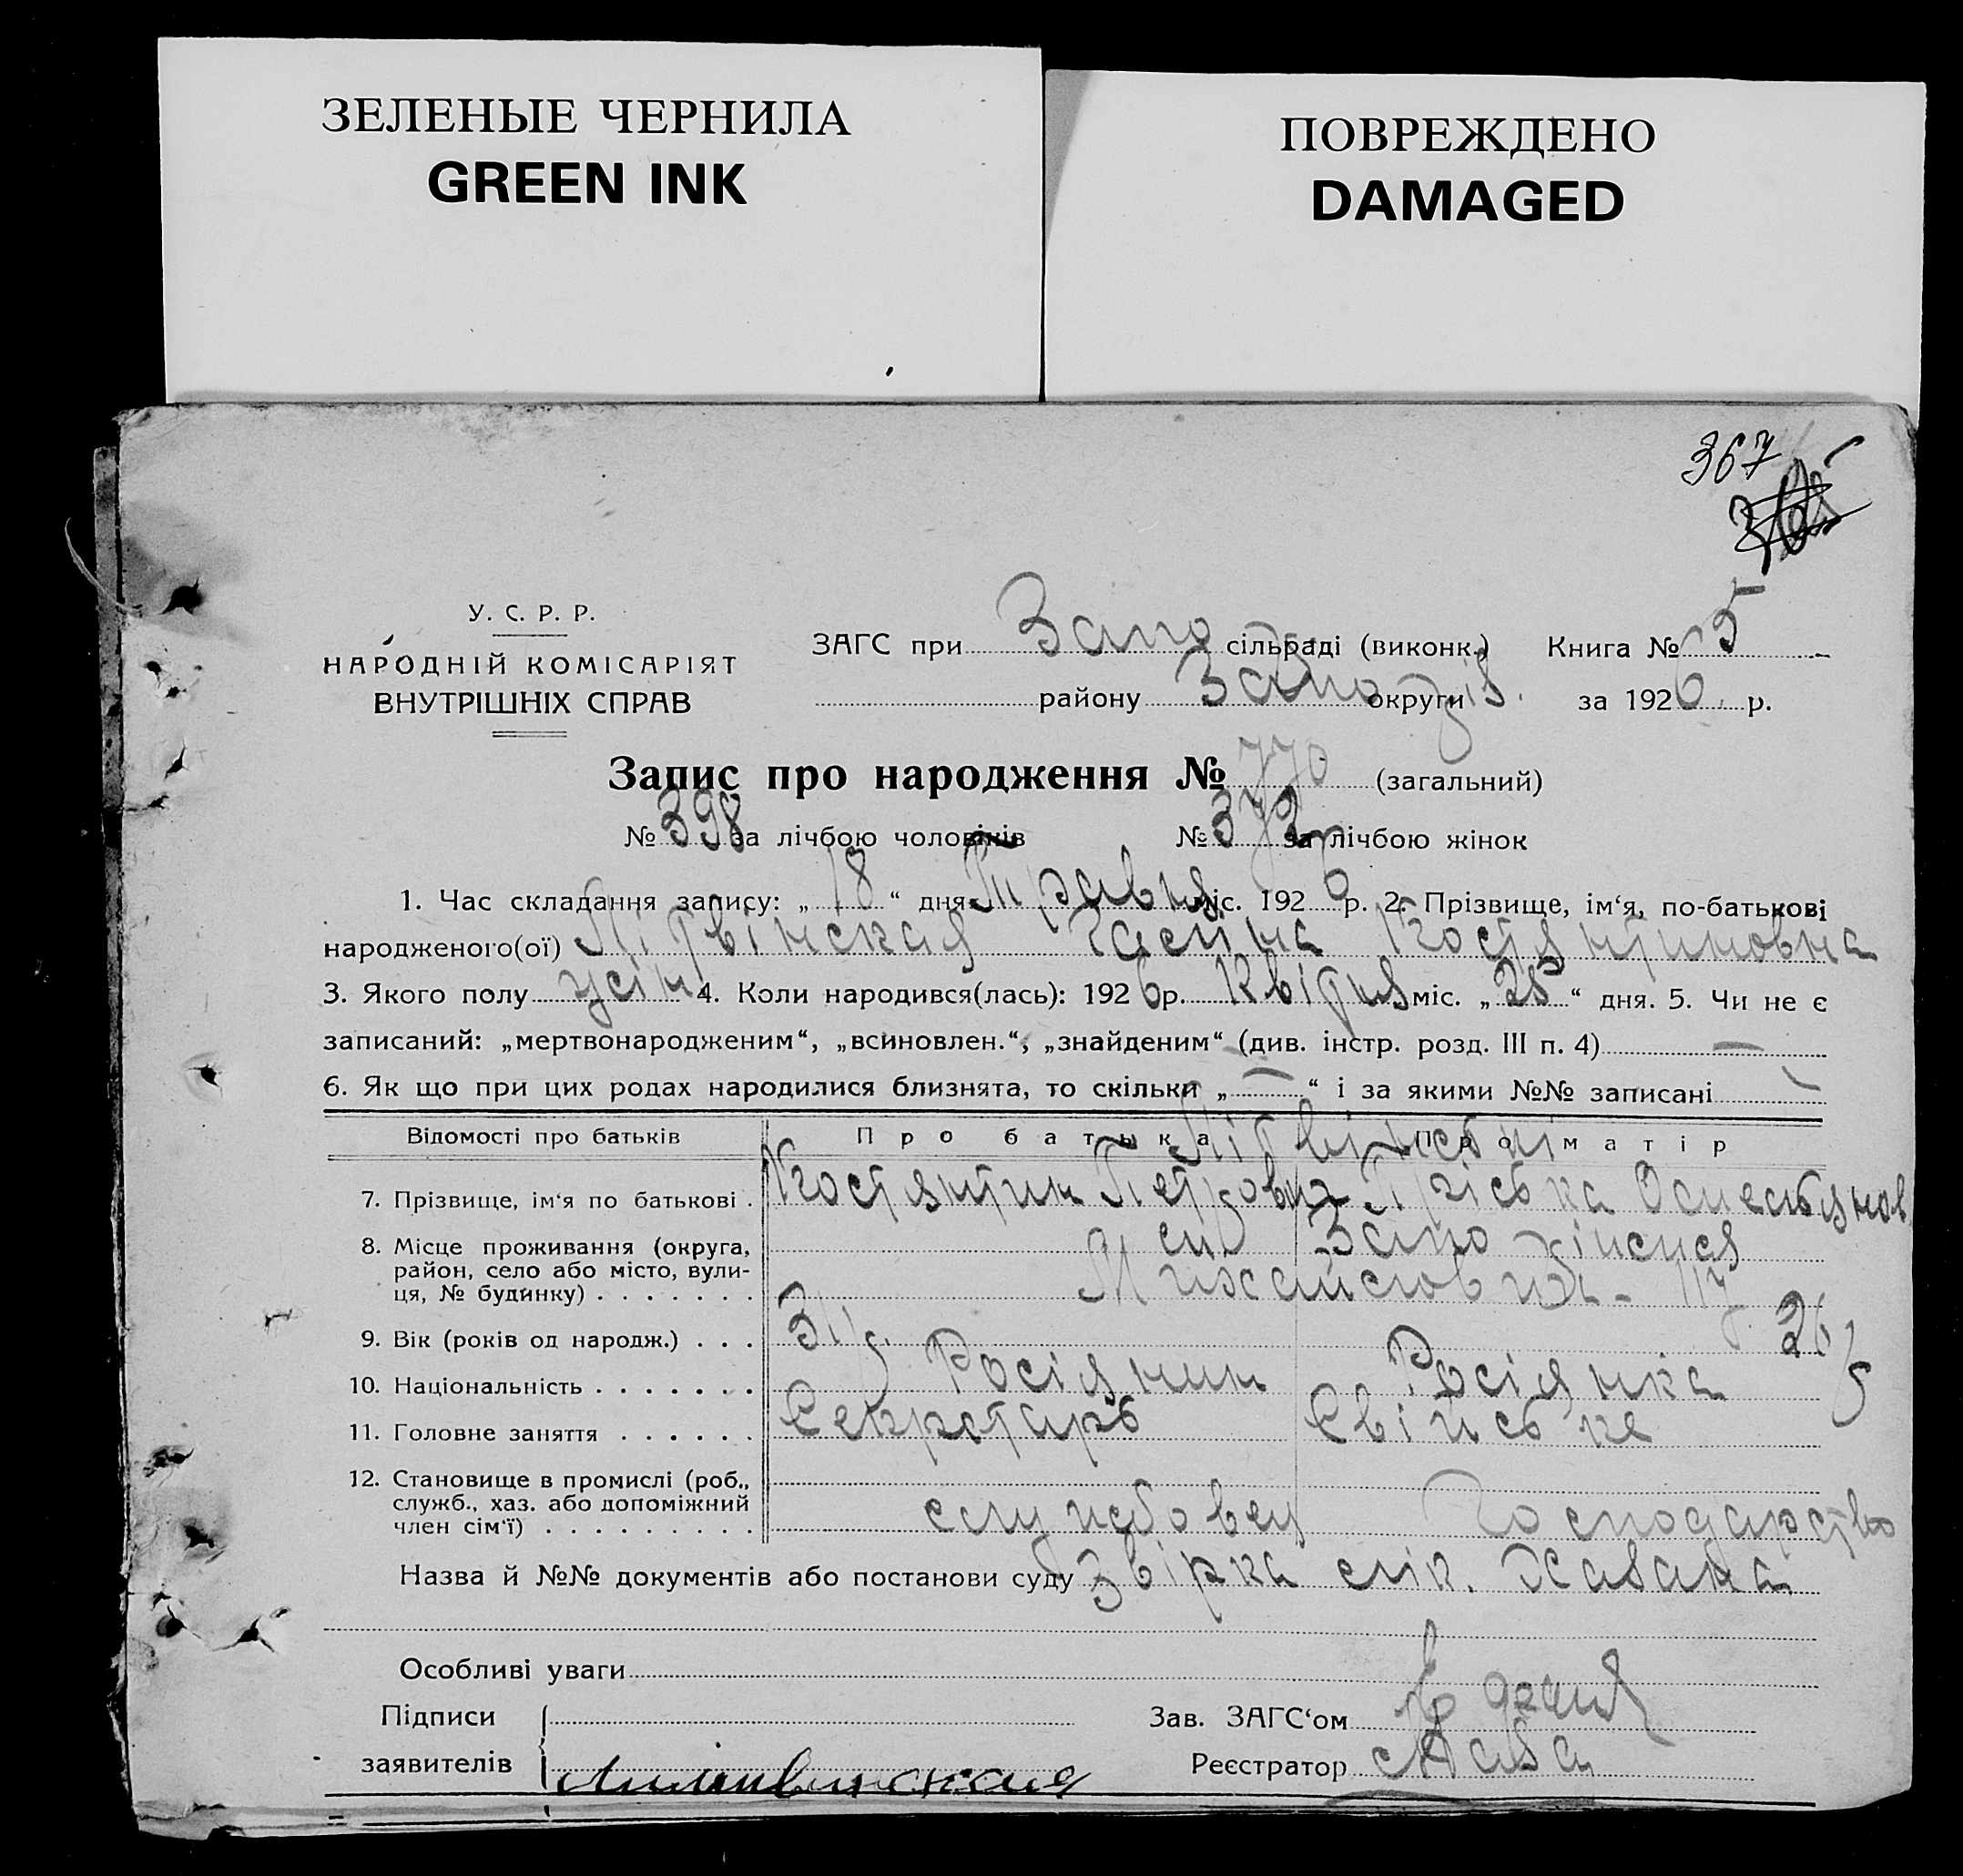 ЗЕЛЕНЫЕ ЧЕРНИЛА
GREEN INK
ПОВРЕЖДЕНО
DAMAGED
367
У. С. Р. Р.
НАРОДНІЙ КОМІСАРІЯТ
ВНУТРІШНІХ СПРАВ
ЗАГС при Запо сільраді (виконк.) Книга № 5
району Запо округи за 1926 р.
Запис про народження № 770 (загальний)
№ 398 за лічбою чоловіків № 372 за лічбою жінок
1. Час складання запису: „ 18 “ дня Травня міс. 1926 р. 2. Прізвище, ім‘я, по-батькові
народженого(ої) Літвінская Галина Костянтиновна
3. Якого полу жін 4. Коли народився(лась): 1926 р. Квітня міс. „ 25 “ дня. 5. Чи не є
записаний: „мертвонародженим“, „всиновлен.“, „знайденим“ (див. інстр. розд. III п. 4) —
6. Як що при цих родах народилися близнята, то скільки „ — “ і за якими №№ записані —
Відомості про батьків Про батька Про матір
Літвінські
7. Прізвище, ім‘я по батькові . Костянтин Петрович
8. Місце проживання (округа,
район, село або місто, вули-
ця, № будинку) . . . . . . .
м Запоріжжя
117
9. Вік (років од народж.) . . . 31 р. 26 р
10. Національність . . . . . . . Росіянин Росіянка
11. Головне заняття . . . . . . Секретарь Свійське
12. Становище в промислі (роб.,
служб., хаз. або допоміжний
член сім‘ї) . . . . . . . . .
службовец Господарство
Назва й №№ документів або постанови суду Звірка
Особливі уваги
Підписи
заявителів Литвинская
Зав. ЗАГС‘ом
Реєстратор